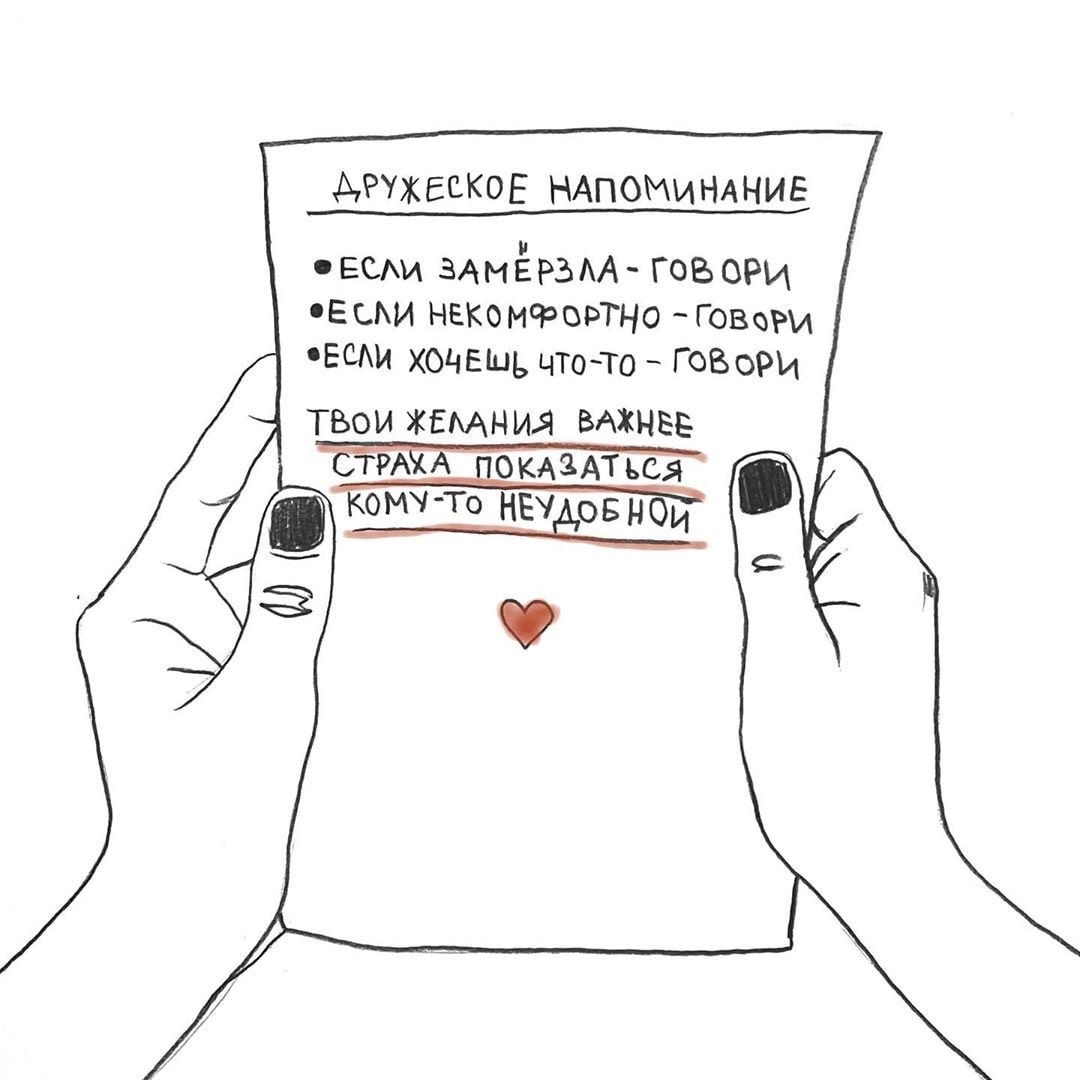 ДРУЖЕСКОЕ НАПОМИНАНИЕ
• ЕСЛИ ЗАМЁРЗЛА - ГОВОРИ
• ЕСЛИ НЕКОМФОРТНО - ГОВОРИ
• ЕСЛИ ХОЧЕШЬ ЧТО-ТО - ГОВОРИ
ТВОИ ЖЕЛАНИЯ ВАЖНЕЕ
СТРАХА ПОКАЗАТЬСЯ
КОМУ-ТО НЕУДОБНОЙ